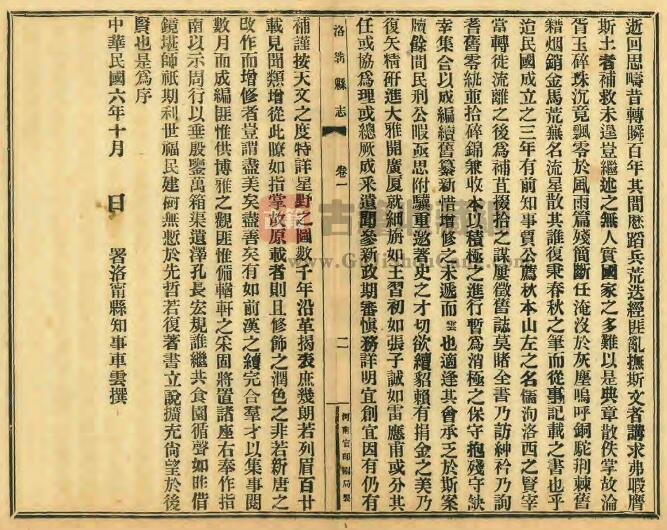 逝回思疇昔轉瞬百年其間歷蹈兵荒迭經匪亂撫斯文者講求弗暇膺
斯土者補救未遑豈繼述之無人實國家之多難以是典章散佚掌故淪
胥玉碎珠沉竟飄零於風雨篇殘簡斷任淹沒於灰塵嗚呼銅駝荆棘舊
籍烟銷金馬荒蕪名流星散其誰復秉春秋之筆而從事記載之書也乎
迨民國成立之三年有前知事賈公薦秋本山左之名儒洵洛西之賢宰
當轉徙流離之後爲補苴掇拾之謀屢徵舊誌莫賭全書乃訪紳衿乃詢
耆舊零紙並拾碎錦兼收本以積極之進行暫爲消極之保守抱殘守缺
幸集合以成編續舊纂新惜增修之未遞而雲也適逢其會承乏於斯案
牘餘間民刑公暇亟思附驥重邀著史之才切欲續貂賴有捐金之美乃
復矢精研進大雅開廣厦就細旃如王習初如張子誠如雷應甫或分其
任或協爲理或總厥成采遺聞參新政期審愼務詳明宜創宜因有仍有
洛寧縣志
卷一
二
河南官印刷局製
補謹按天文之度特詳星野之圖數千年沿革揭表庶幾朗若列眉百廿
載見聞類增從此瞭如指掌故原載者則且修飾之潤色之非若新唐之
改作而增修者豈謂盡美矣盡善矣有如前漢之續完合羣才以集事閱
數月而成編匪惟供博雅之觀匪惟備輶軒之采固將置諸座右奉作指
南以示周行以垂殷鑒萬箱渠遺澤孔長宏規誰繼共食園循聲如昨借
鏡堪師祇期利世福民建樹無慙於先哲若復著書立說擴充尙望於後
賢也是爲序
中華民國六年十月 日 署洛甯縣知事車雲撰